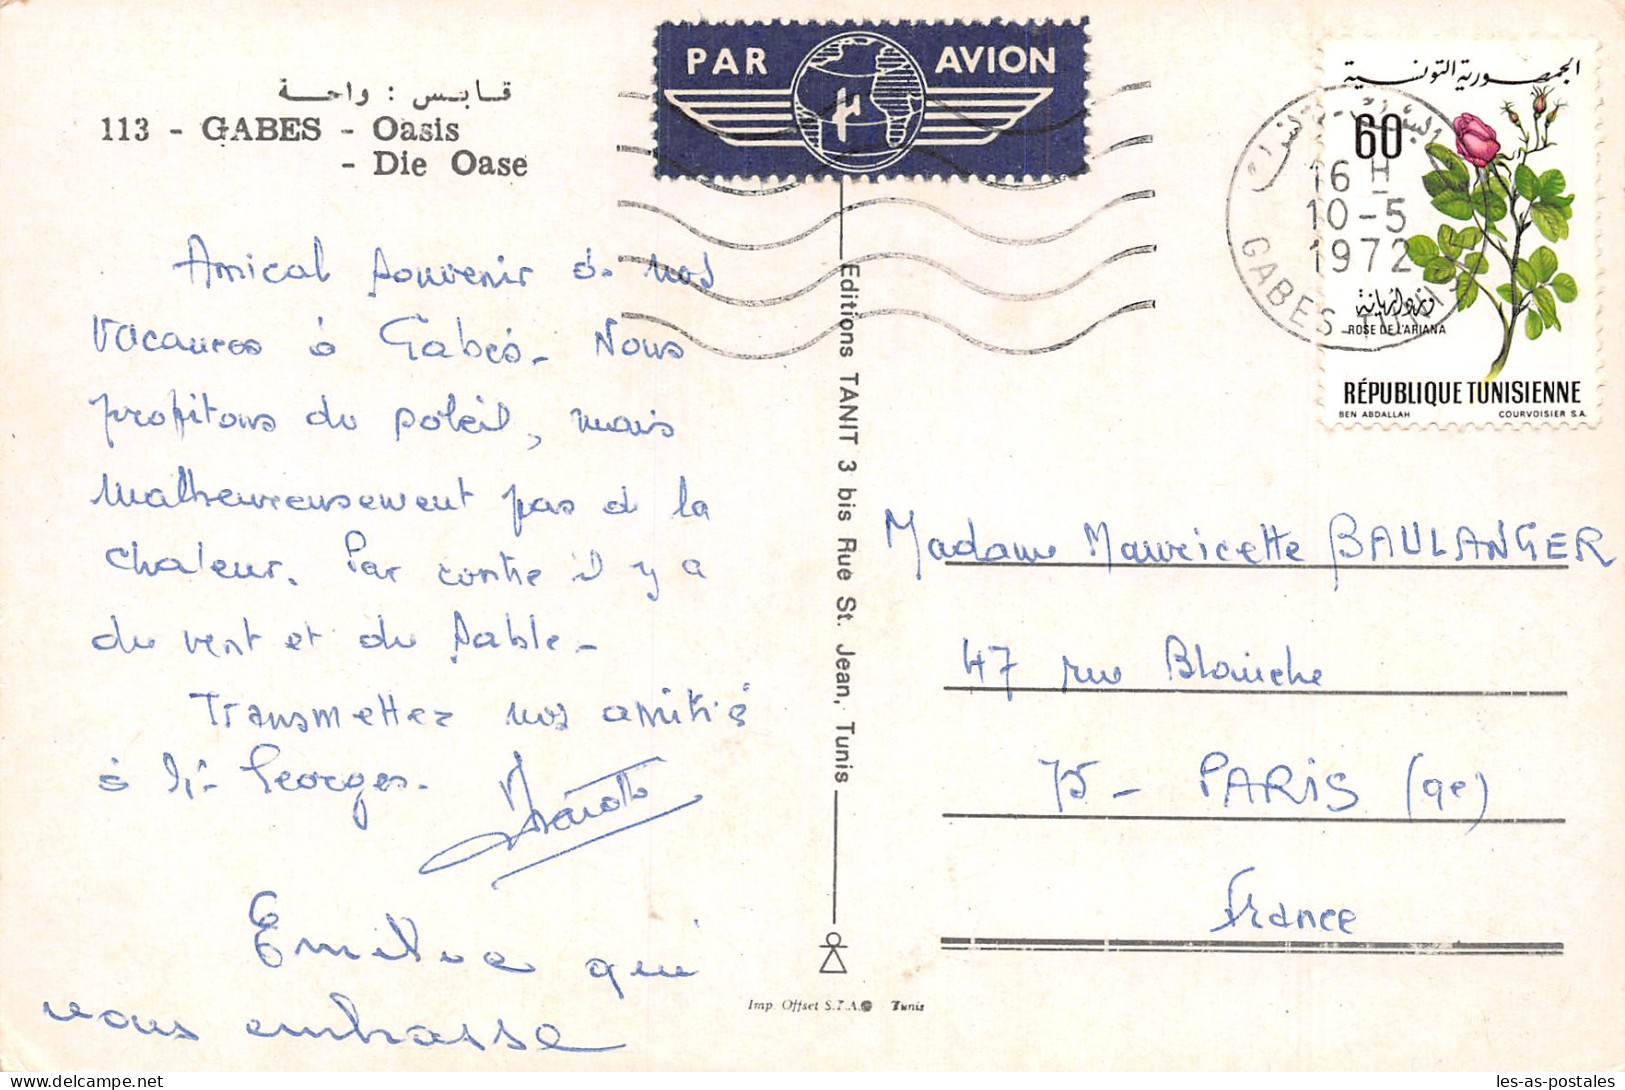 قابس : واحة
113 - GABES - Oasis
- Die Oase
PAR AVION
الجمهورية التونسية
60
16 H
10-5
1972
GABES
ROSE DE L'ARIANA
RÉPUBLIQUE TUNISIENNE
BEN ABDALLAH COURVOISIER S.A.
Amical souvenir de nos
vacances à Gabès. Nous
profitons du soleil, mais
malheureusement pas de la
chaleur. Par contre il y a
du vent et du sable -
Transmettez nos amitiés
à Mr Georges.
qui
vous embrasse
Editions TANIT 3 bis Rue St. Jean, Tunis
Imp. Offset S.T.A.G Tunis
Madame Mauricette BAULANGER
47 rue Blanche
75 - PARIS (9e)
France
les-as-postales